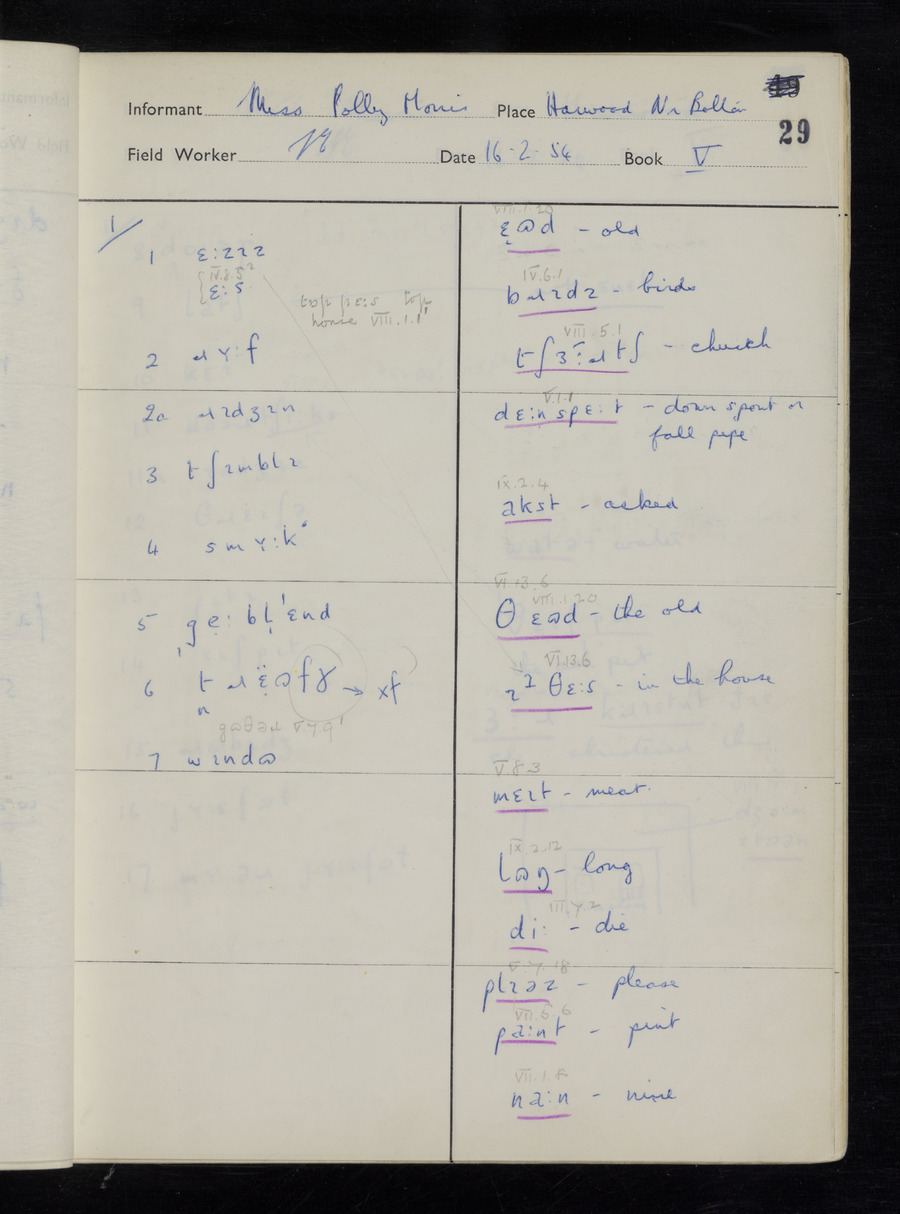 Informant Miss Polly Morris Place Harwood Nr Bolton
29
Field Worker Date 16-2-54 Book V
1/
1 ɛ:zɪz
IV.8.5
ɛ:s
tɒp pɛ:s top
house VIII.1.1
2 ɹʏ:f
2a ɹɪdʒɪn
3 tʃɪmblɪ
4 smʏ:k
5 ge:bl̩'ɛnd
6 → xf
7 wɪndɷ
VIII.1.20
ɛɷd - old
IV.6.1
bɹɪdz - birds
VIII.5.1
- church
V.1.1
dɛ:n spɛ:t - down spout or
fall pipe
IX.2.4
akst - asked
VI.13.6
VIII.1.20
θ ɛɷd - the old
VI.13.6
θɛ:s - in the house
V.8.3
mɛɪt - meat.
IX.2.12
lɷŋ - long
di: - die
plɪəz - please
VII.6.6
pa:nt - pint
na:n - nine